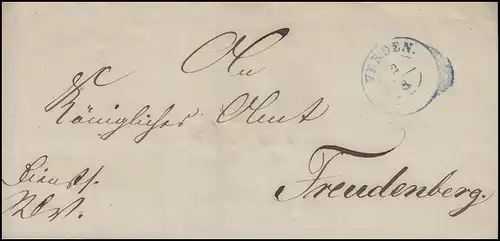 An
VERDEN.
2/8
Königliches Amt
Dienst.
Freudenberg.